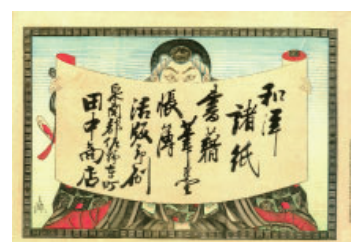 和洋
諸紙
書籍
筆墨
帳簿
活版印刷
泉南郡佐野本町
田中商店